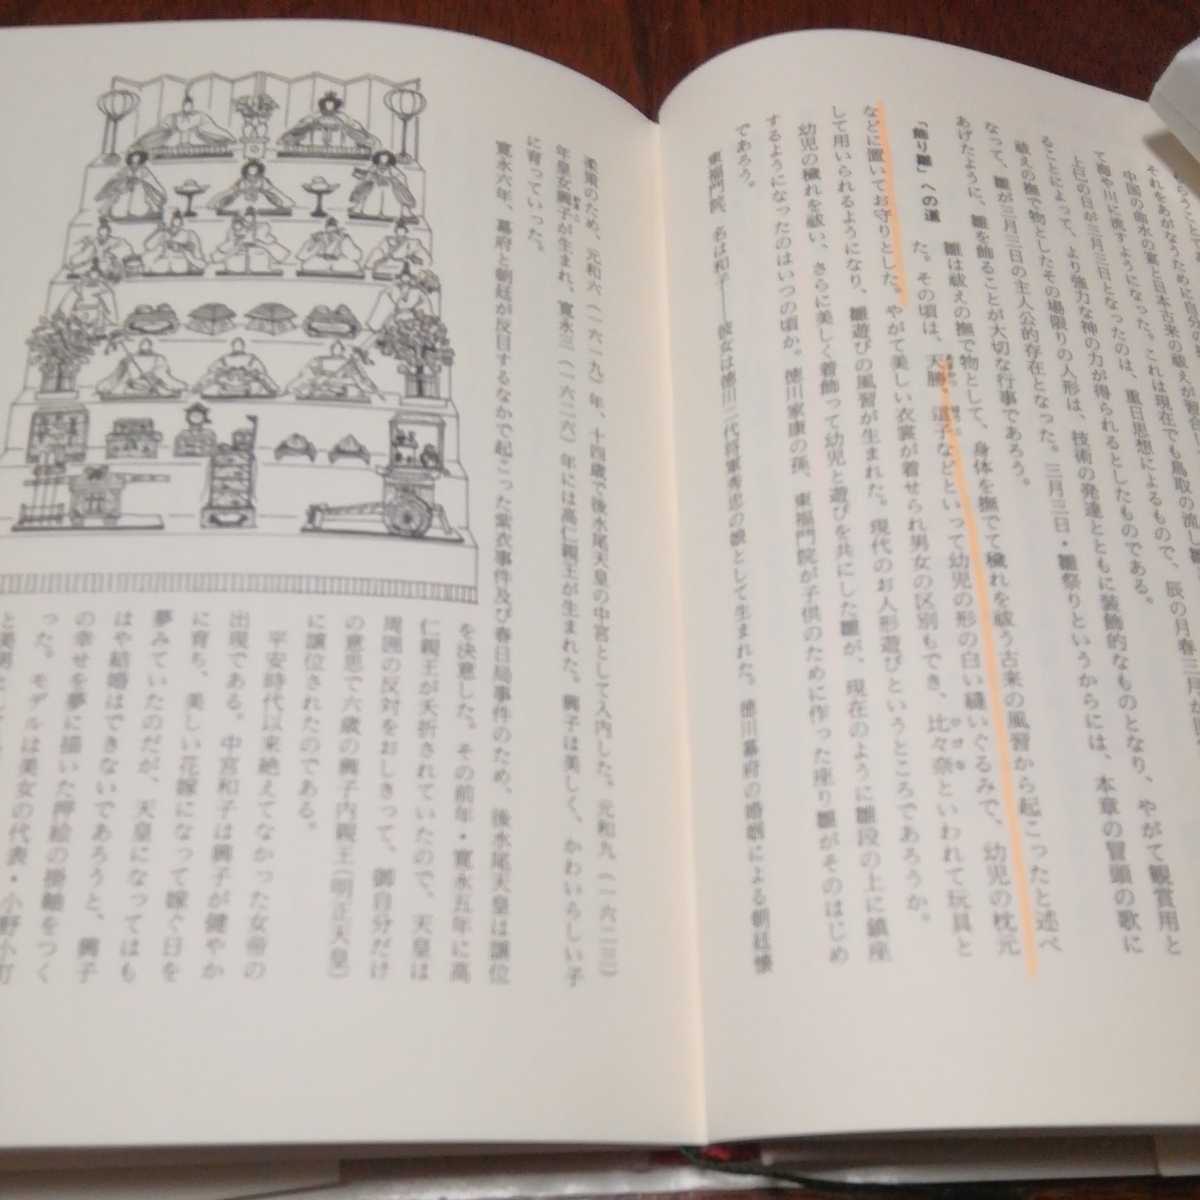 それをあがなうために
中国の曲水の宴と日本古来の祓えが習合
て海や川に流すようになった。これは現在でも鳥取の流し雛
上巳の日が三月三日となったのは、重日思想によるもので、辰の月春三月が
ることによって、より強力な神の力が得られるとしたものである。
祓えの撫で物としたその場限りの人形は、技術の発達とともに装飾的なものとなり、やがて観賞用と
なって、雛が三月三日の主人公的存在となった。三月三日・雛祭りというからには、本章の冒頭の歌に
あげたように、雛を飾ることが大切な行事であろう。
「飾り雛」への道
雛は祓えの撫で物として、身体を撫でて穢れを祓う古来の風習から起こったと述べ
た。その頃は、天勝・這子などといって幼児の形の白い縫いぐるみで、幼児の枕元
などに置いてお守りとした。やがて美しい衣裳が着せられ男女の区別もでき、比々奈といわれて玩具と
して用いられるようになり、雛遊びの風習が生まれた。現代のお人形遊びというところであろうか。
幼児の穢れを祓い、さらに美しく着飾って幼児と遊びを共にした雛が、現在のように雛段の上に鎮座
するようになったのはいつの頃か。徳川家康の孫、東福門院が子供のために作った座り雛がそのはじめ
であろう。
東福門院、名は和子――彼女は徳川二代将軍秀忠の娘として生まれた。徳川幕府の婚姻による朝廷懐
柔策のため、元和六(一六一九)年、十四歳で後水尾天皇の中宮として入内した。元和九(一六二三)
年皇女興子が生まれ、寛永三(一六二六)年には高仁親王が生まれた。興子は美しく、かわいらしい子
に育っていった。
寛永六年、幕府と朝廷が反目するなかで起こった紫衣事件及び春日局事件のため、後水尾天皇は譲位
を決意した。その前年・寛永五年に高
仁親王が夭折されていたので、天皇は
周囲の反対をおしきって、御自分だけ
の意思で六歳の興子内親王(明正天皇)
に譲位されたのである。
平安時代以来絶えてなかった女帝の
出現である。中宮和子は興子が健やか
に育ち、美しい花嫁になって嫁ぐ日を
夢みていたのだが、天皇になってはも
はや結婚はできないであろうと、興子
の幸せを夢に描いた押絵の掛軸をつく
った。モデルは美女の代表・小野小町
と美男